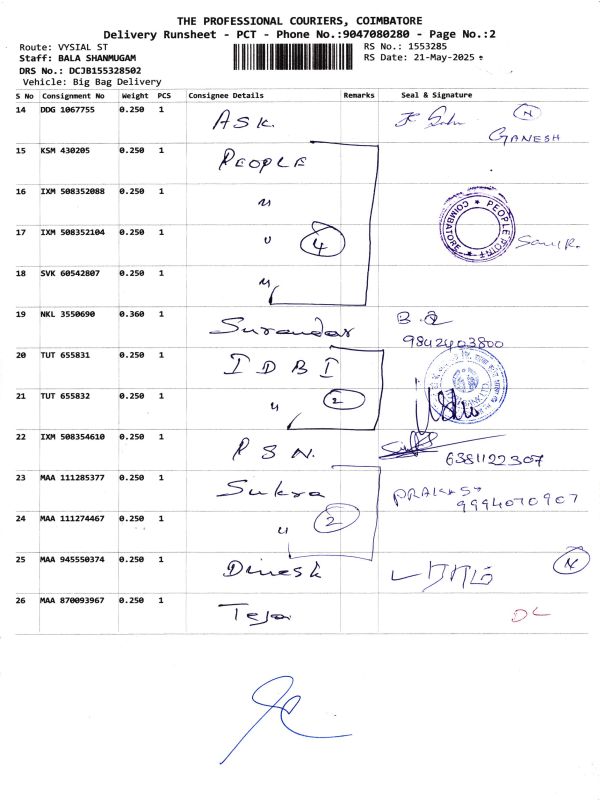 THE PROFESSIONAL COURIERS, COIMBATORE
Delivery Runsheet - PCT - Phone No.:9047080280 - Page No.:2
Route: VYSIAL ST
RS No.: 1553285
Staff: BALA SHANMUGAM
RS Date: 21-May-2025
DRS No.: DCJB155328502
Vehicle: Big Bag Delivery
S No Consignment No Weight PCS Consignee Details Remarks Seal & Signature
14 DDG 1067755 0.250 1 ASK. N
GANESH
15 KSM 430205 0.250 1 PEOPLE
16 IXM 508352088 0.250 1 "
17 IXM 508352104 0.250 1 " 4 COIMBATORE ★ PEOPLE POINT ★
18 SVK 60542807 0.250 1 "
19 NKL 3550690 0.360 1 Surandar B.
9842403800
20 TUT 655831 0.250 1 IDBI
21 TUT 655832 0.250 1 " 2
22 IXM 508354610 0.250 1 PSN. 6381122307
23 MAA 111285377 0.250 1 Sukra PRAKASH
9994070907
24 MAA 111274467 0.250 1 " 2
25 MAA 945550374 0.250 1 Dinesh N
26 MAA 870093967 0.250 1 Teja DL